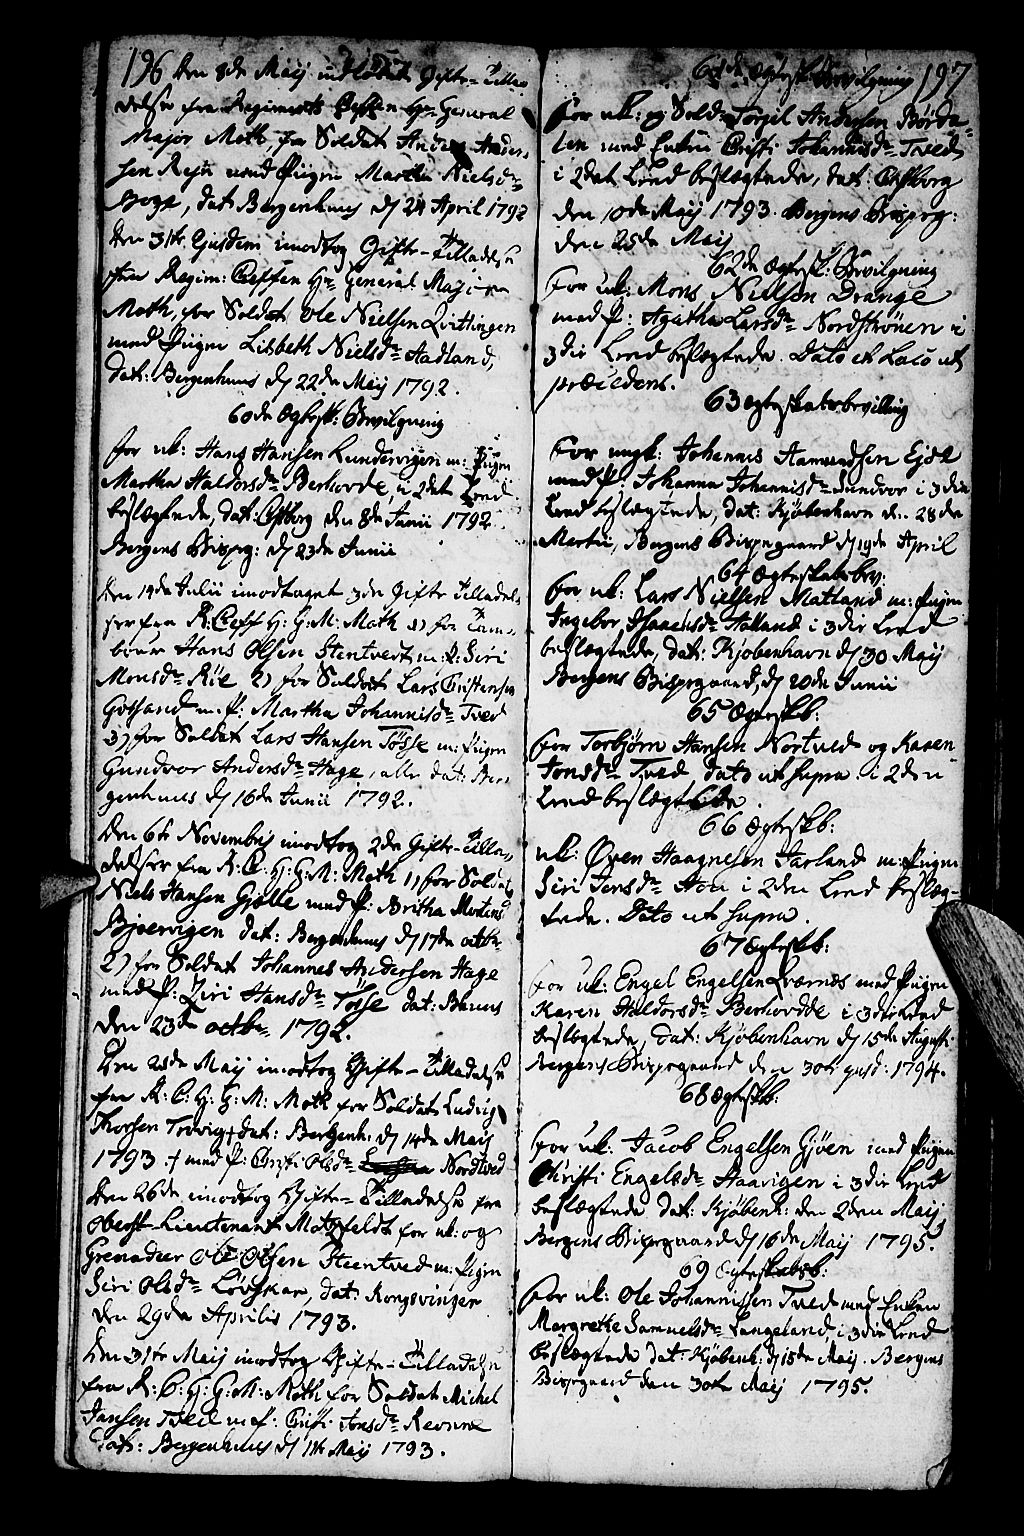 196
Den 8de Maij imodtog Gifte-Tilla-
delse fra Regiments Cheffen Hr General
Major Moth, for Soldat Anders Anders-
sen Reju med Pigen Martha Nielsdr
Berge, dat. Bergenhuus d/ 24 April 1792
Den 31te Ejusdem imodtog Gifte-Tilladelse
fra Regim: Cheffen Hr General Major
Moth, for Soldat Ole Nielsen Qvittingen
med Pigen Lisbeth Nielsdr Hadland,
dat: Bergenhuus d/ 22de Maij 1792.
60de Ægtesk: Bevilgning
for uk: Hans Hansen Lundervigen m: Pigen
Martha Haldorsdr Berhovde, i 2det Leed
beslægtede, dat: Chsborg den 8de Junii 1792.
Bergens Bispg: d/ 23de Junii
Den 19de Julii imodtaget 3de Gifte Tilladel-
ser fra R: Cheff H: G: M: Moth 1) for Tam-
bour Hans Olsen Stentvedt, m: P: Siri
Monsdr Röe 2) for Soldat Lars Christensen
Gotland m. P: Martha Johannisdr Tved
3) for Soldat Lars Hansen Tösse m: Pigen
Gundvor Andersdr Hage, alle dat: Ber-
genhuus d/ 16de Junii 1792.
Den 6te Novembris imodtog 2de Gifte-Tilla-
delser fra R: C: H: G: M: Moth 1) for Soldat
Niels Hansen Gjölle med P: Britha Mortensd
Bjoervigen dat: Bergenhuus d/ 17de octbr
2) for Soldat Johannes Andersen Hage
med P: Ziri Hansdr Tösse dat: Bhuus
den 23de octbr 1792.
Den 28de Maij imodtog Gifte-Tilladelse
fra R: C: H: G: M: Moth for Soldat Ludvig
Thorsen Trovig † dat: Bergenh: d/ 14de Maij
1793. † med P: Christi Olsdr Nordtved
Den 26de imodtog Gifte-Tilladelse fra
Oberst-Lieutenant Motzfeldt for uk: og
Grenadeer Ole Olsen Steentved m: Pigen
Siri Olsdr Lövskar, dat: Kongsvinger
den 29de Aprilis 1793.
Den 31te Maij imodtog Gifte-Tilladelse
fra R: C: H: G: M: Moth for Soldat Michel
Jansen Tved m P: Christi Jonsdr Revnne
dat: Bergenhuus d/ 11te Maij 1793.
197
61de Ægtesk: Bevilgning
for uk: og Sold: Torgel Andersen Börda-
len med Enken Christi Johannisdr Tved
i 2det Leed beslægtede, dat: Chsborg
den 10de Maij 1793. Bergens Bispg:
den 25de Maij
62de Ægtesk: Bevilgning
for uk: Mons Nielsen Drange
med P: Agatha Larsdr Nordströnen i
3die Leed beslægtede. Dato et Loco ut
præcedens.
63 Ægteskabsbevilling
for ungk: Johannes Aamundsen Ejde
med P: Johanna Johannisdr Sundvor i 3die
Leed beslægtede, dat: Kjöbenhavn d. 28de
Martii, Bergens Bispegaard d/ 19de April
64 Ægteskabsbev:
for uk: Lars Nielsen Matland m: Pigen
Ingebor Haaensdr Hatland i 3die Leed
beslægtede, dat: Kjöbenhavn d/ 30 Maij
Bergens Bispegaard, d/ 20de Junii
65 Ægteskb:
for Torbjörn Hansen Nortved og Karen
Jonsdr Tved, dato ut supra i 2den
Leed beslægtede.
66 Ægteskb:
uk: Öven Haagnesen Harland m: Pigen
Siri Jonsdr Hou i 2den Leed beslæg-
tede. Dato ut supra.
67 Ægteskb:
for uk: Engel Engelsen Qværnes med Pigen
Karen Haldorsdr Berhovdde i 3die Leed
beslægtede, dat: Kjöbenhavn d/ 15de Augusti
Bergens Bispegaard den 30te ejusd: 1794.
68 Ægteskb:
for uk: Jacob Engelsen Gjöen med Pigen
Christi Engelsdr Haavigen i 3die Leed
beslægtede dat: Kjöbenh: den 2den Maij,
Bergens Bispegaard d/ 16de Maij 1795.
69 Ægteskabsb:
for uk: Ole Johannissen Tved med Enken
Margrethe Samuelsdr Langeland, i 3die Leed
beslægtede dat: Kjöbenh: d/ 15de Maij. Bergens
Bispegaard den 30te Maij 1795.